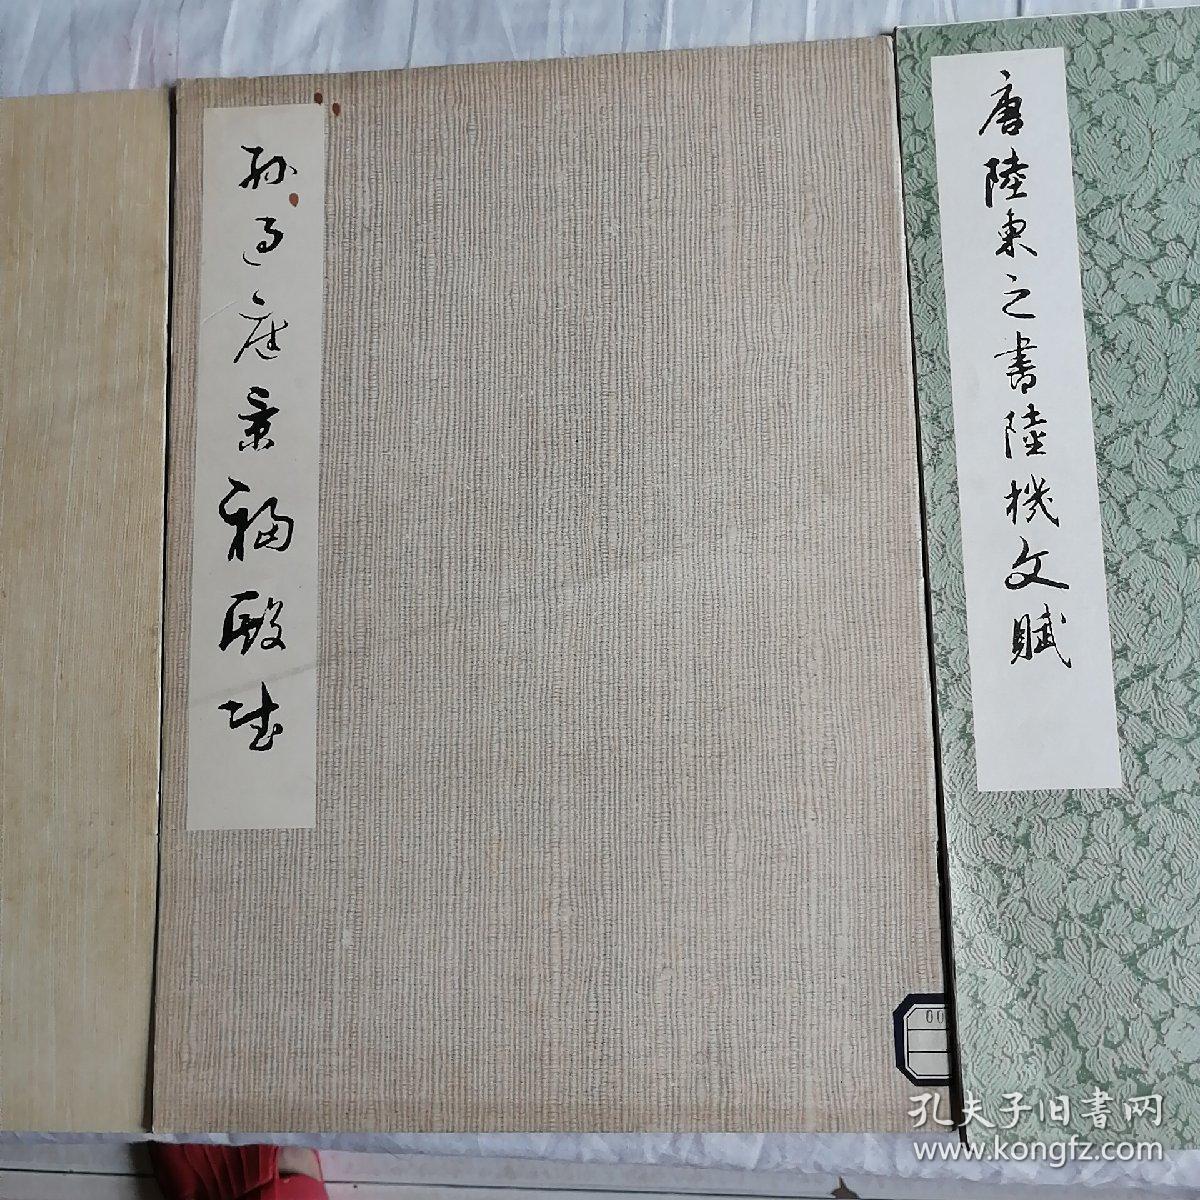 孙过庭景福殿赋
唐陸柬之書陸機文賦
00
孔夫子旧書网
www.kongfz.com